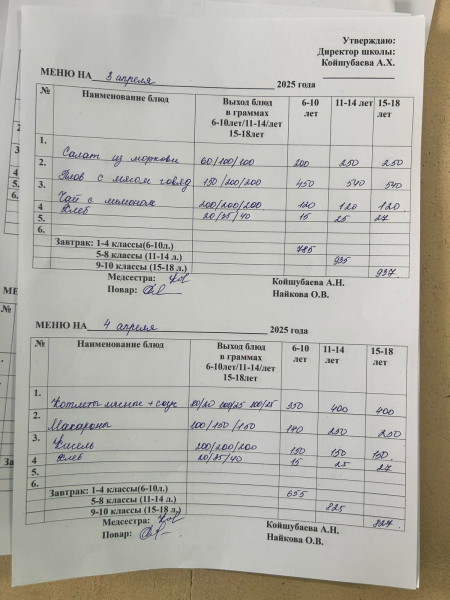 Утверждаю:
Директор школы:
Койшубаева А.Х.
МЕНЮ НА 3 апреля 2025 года
№ Наименование блюд Выход блюд в граммах 6-10лет/11-14/лет 15-18лет 6-10 лет 11-14 лет 15-18 лет
1. Салат из моркови 60/100/100 200 250 250
2. Плов с мясом говяд 150/200/200 450 540 540
3. Чай с лимоном 200/200/200 120 120 120
4 Хлеб 20/35/40 15 25 27
5.
6.
Завтрак: 1-4 классы(6-10л.) 785
5-8 классы (11-14 л.) 935
9-10 классы (15-18 л.) 937
Медсестра: Койшубаева А.Н.
Повар: Найкова О.В.
МЕНЮ НА 4 апреля 2025 года
№ Наименование блюд Выход блюд в граммах 6-10лет/11-14/лет 15-18лет 6-10 лет 11-14 лет 15-18 лет
1. Котлеты мясные + соус 80/20 100/25 100/25 350 400 400
2. Макароны 100/150/150 140 250 250
3. Кисель 200/200/200 150 150 150
4 Хлеб 20/35/40 15 25 27
5.
6.
Завтрак: 1-4 классы(6-10л.) 655
5-8 классы (11-14 л.) 825
9-10 классы (15-18 л.) 827
Медсестра: Койшубаева А.Н.
Повар: Найкова О.В.